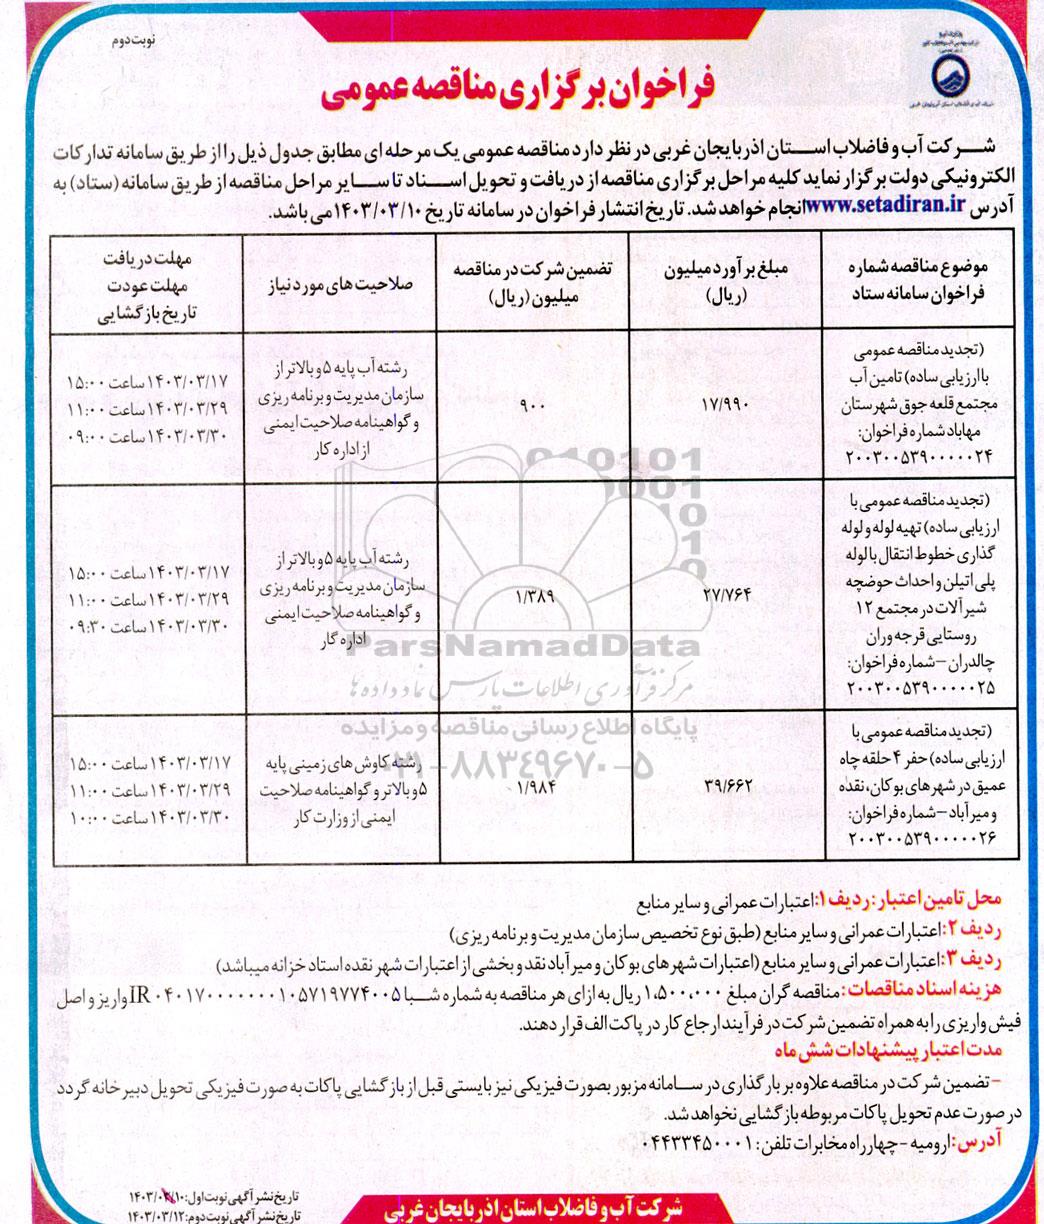 نوبت دوم
فراخوان برگزاری مناقصه عمومی
شرکت آب و فاضلاب استان اذربایجان غربی در نظر دارد مناقصه عمومی یک مرحله ای مطابق جدول ذیل را از طریق سامانه تدارکات
الکترونیکی دولت برگزار نماید کلیه مراحل برگزاری مناقصه از دریافت و تحویل اسناد تا سایر مراحل مناقصه از طریق سامانه (ستاد) به
آدرس www.setadiran.ir انجام خواهد شد. تاریخ انتشار فراخوان در سامانه تاریخ ۱۴۰۳/۰۳/۱۰ می باشد.
موضوع مناقصه شماره
فراخوان سامانه ستاد
مبلغ برآورد میلیون
(ریال)
تضمین شرکت در مناقصه
میلیون (ریال)
صلاحیت های مورد نیاز
مهلت دریافت
مهلت عودت
تاریخ بازگشایی
(تجدید مناقصه عمومی
با ارزیابی ساده) تامین آب
مجتمع قلعه جوق شهرستان
مهاباد شماره فراخوان:
۲۰۰۳۰۰۵۳۹۰۰۰۰۰۲۴
۱۷/۹۹۰
۹۰۰
رشته آب پایه ۵ و بالاتر از
سازمان مدیریت و برنامه ریزی
و گواهینامه صلاحیت ایمنی
از اداره کار
۱۴۰۳/۰۳/۱۷ ساعت ۱۵:۰۰
۱۴۰۳/۰۳/۲۹ ساعت ۱۱:۰۰
۱۴۰۳/۰۳/۳۰ ساعت ۰۹:۰۰
(تجدید مناقصه عمومی با
ارزیابی ساده) تهیه لوله و لوله
گذاری خطوط انتقال با لوله
پلی اتیلن و احداث حوضچه
شیرآلات در مجتمع ۱۲
روستایی قرجه وران
چالدران – شماره فراخوان:
۲۰۰۳۰۰۵۳۹۰۰۰۰۰۲۵
۲۷/۷۶۴
۱/۳۸۹
رشته آب پایه ۵ و بالاتر از
سازمان مدیریت و برنامه ریزی
و گواهینامه صلاحیت ایمنی
اداره گار
۱۴۰۳/۰۳/۱۷ ساعت ۱۵:۰۰
۱۴۰۳/۰۳/۲۹ ساعت ۱۱:۰۰
۱۴۰۳/۰۳/۳۰ ساعت ۰۹:۳۰
(تجدید مناقصه عمومی با
ارزیابی ساده) حفر ۴ حلقه چاه
عمیق در شهرهای بوکان، نقده
و میرآباد – شماره فراخوان:
۲۰۰۳۰۰۵۳۹۰۰۰۰۰۲۶
۳۹/۶۶۲
۱/۹۸۴
رشته کاوش های زمینی پایه
۵ و بالاتر و گواهینامه صلاحیت
ایمنی از وزارت کار
۱۴۰۳/۰۳/۱۷ ساعت ۱۵:۰۰
۱۴۰۳/۰۳/۲۹ ساعت ۱۱:۰۰
۱۴۰۳/۰۳/۳۰ ساعت ۱۰:۰۰
ParsNamadData
مرکز فرآوری اطلاعات پارس نماد داده ها
پایگاه اطلاع رسانی مناقصه و مزایده
۰۲۱-۸۸۳۴۹۶۷۰-۵
محل تامین اعتبار: ردیف ۱: اعتبارات عمرانی و سایر منابع
ردیف ۲: اعتبارات عمرانی و سایر منابع (طبق نوع تخصیص سازمان مدیریت و برنامه ریزی)
ردیف ۳: اعتبارات عمرانی و سایر منابع (اعتبارات شهرهای بوکان و میرآباد نقد و بخشی از اعتبارات شهر نقده اسناد خزانه میباشد)
هزینه اسناد مناقصات: مناقصه گران مبلغ ۱،۵۰۰،۰۰۰ ریال به ازای هر مناقصه به شماره شبا IR ۰۴۰۱۷۰۰۰۰۰۰۰۰۱۰۵۷۱۹۷۷۴۰۰۵ واریز و اصل
فیش واریزی را به همراه تضمین شرکت در فرآیند ارجاع کار در پاکت الف قرار دهند.
مدت اعتبار پیشنهادات شش ماه
- تضمین شرکت در مناقصه علاوه بر بارگذاری در سامانه مزبور بصورت فیزیکی نیز بایستی قبل از بازگشایی پاکات به صورت فیزیکی تحویل دبیرخانه گردد
در صورت عدم تحویل پاکات مربوطه بازگشایی نخواهد شد.
آدرس: ارومیه - چهارراه مخابرات تلفن: ۰۴۴۳۳۴۵۰۰۰۱
تاریخ نشر آگهی نوبت اول: ۱۴۰۳/۰۳/۱۰
تاریخ نشر آگهی نوبت دوم: ۱۴۰۳/۰۳/۱۲
شرکت آب و فاضلاب استان اذربایجان غربی